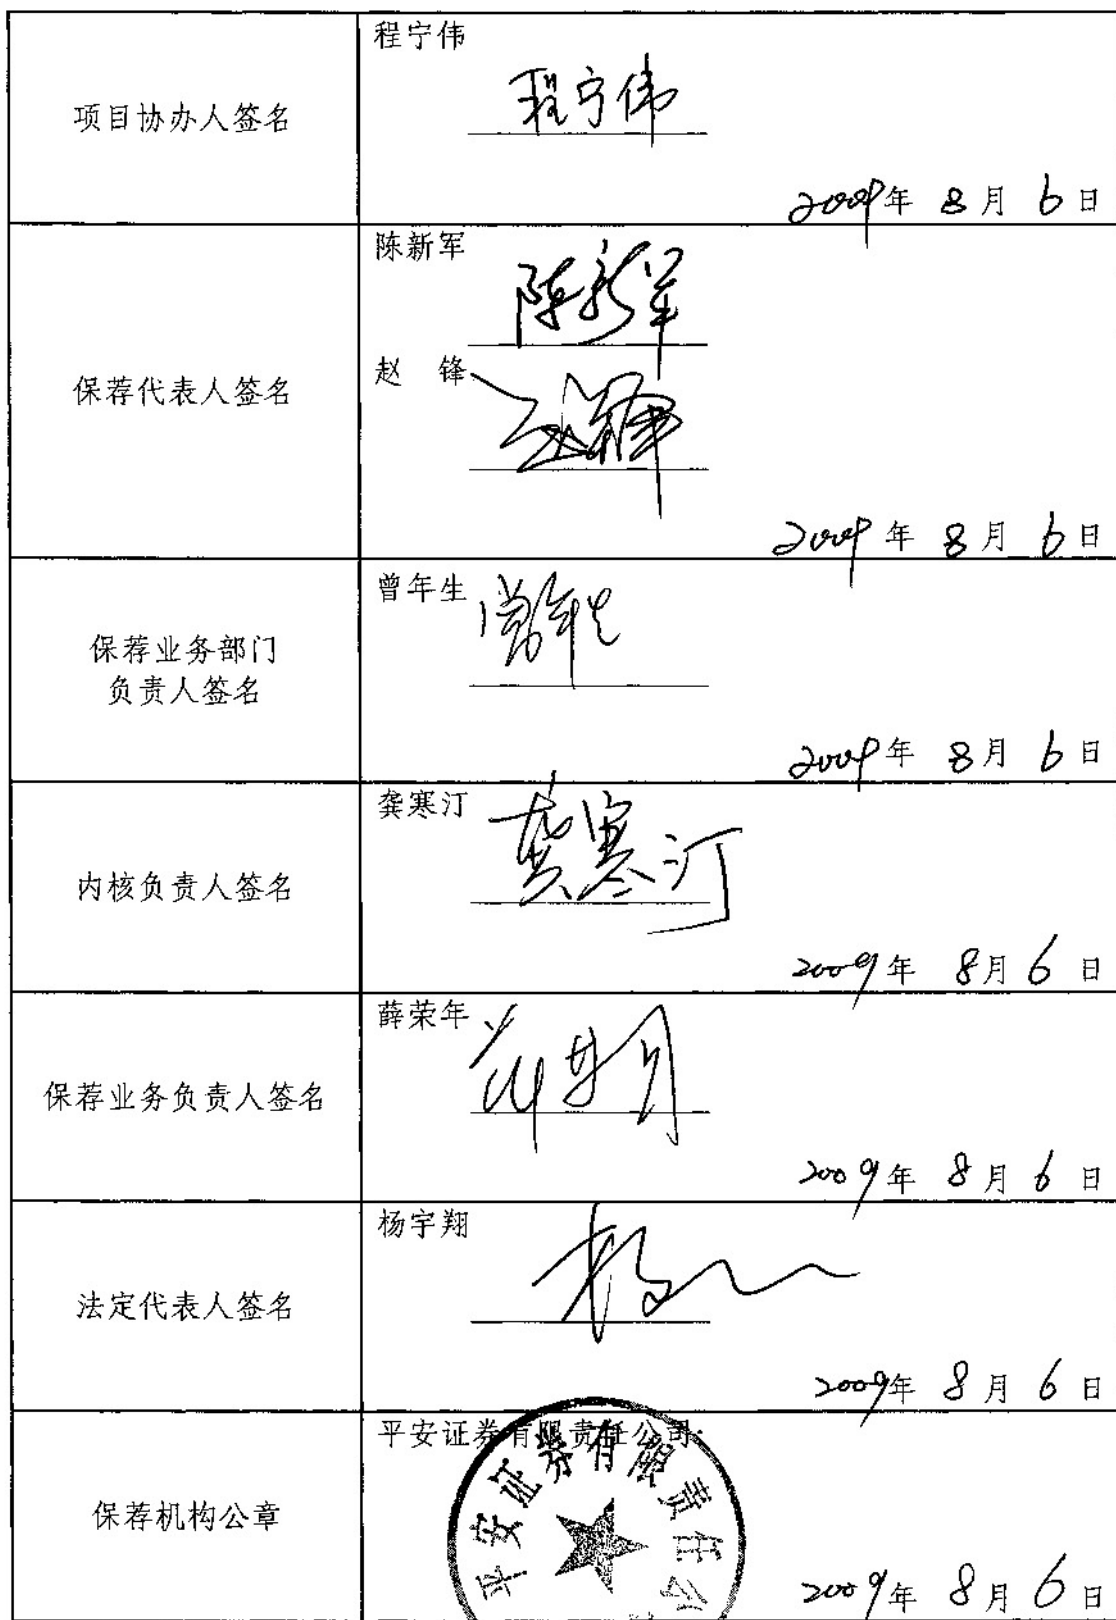 项目协办人签名
程宁伟
程宁伟
2009年 8月 6日
保荐代表人签名
陈新军
陈新军
赵 锋
赵锋
2009年 8月 6日
保荐业务部门
负责人签名
曾年生
曾年生
2009年 8月 6日
内核负责人签名
龚寒汀
龚寒汀
2009年 8月 6日
保荐业务负责人签名
薛荣年
2009年 8月 6日
法定代表人签名
杨宇翔
2009年 8月 6日
保荐机构公章
平安证券有限责任公司
平安证券有限责任公
2009年 8月 6日